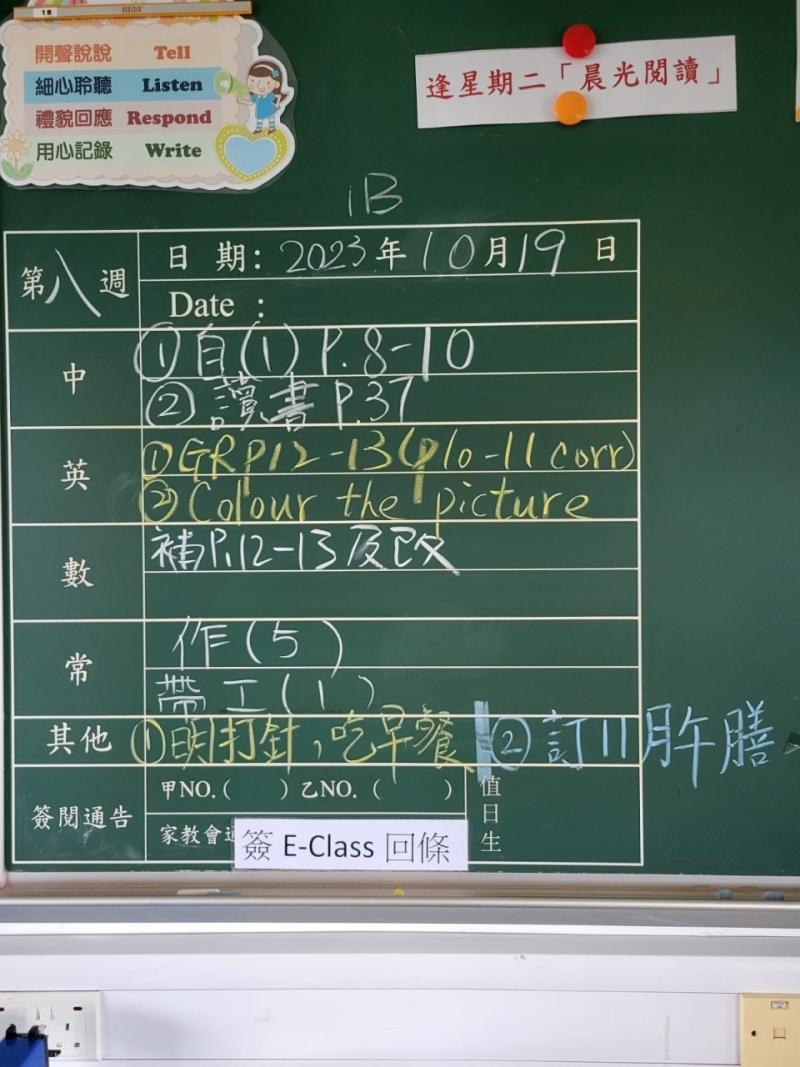 1B
開聲說說 Tell
細心聆聽 Listen
禮貌回應 Respond
用心記錄 Write
逢星期二「晨光閱讀」
1B
第八週
日期: 2023年10月19日
Date :
中
①自(1) P.8-10
②讀書 P.37
英
①GR P12-13 (p10-11 corr)
②Colour the picture
數
補P.12-13及改
常
作(5)
帶工(1)
其他
①明打針,吃早餐 ②訂11月午膳
簽閱通告
甲NO.( ) 乙NO.( )
家教會
值日生
簽 E-Class 回條